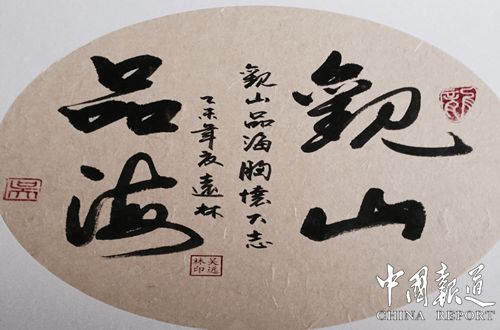 觀山
品海
觀山品海胸懷大志
乙未年夏遠林
吴远
林印
吴
中國報道
CHINA REPORT